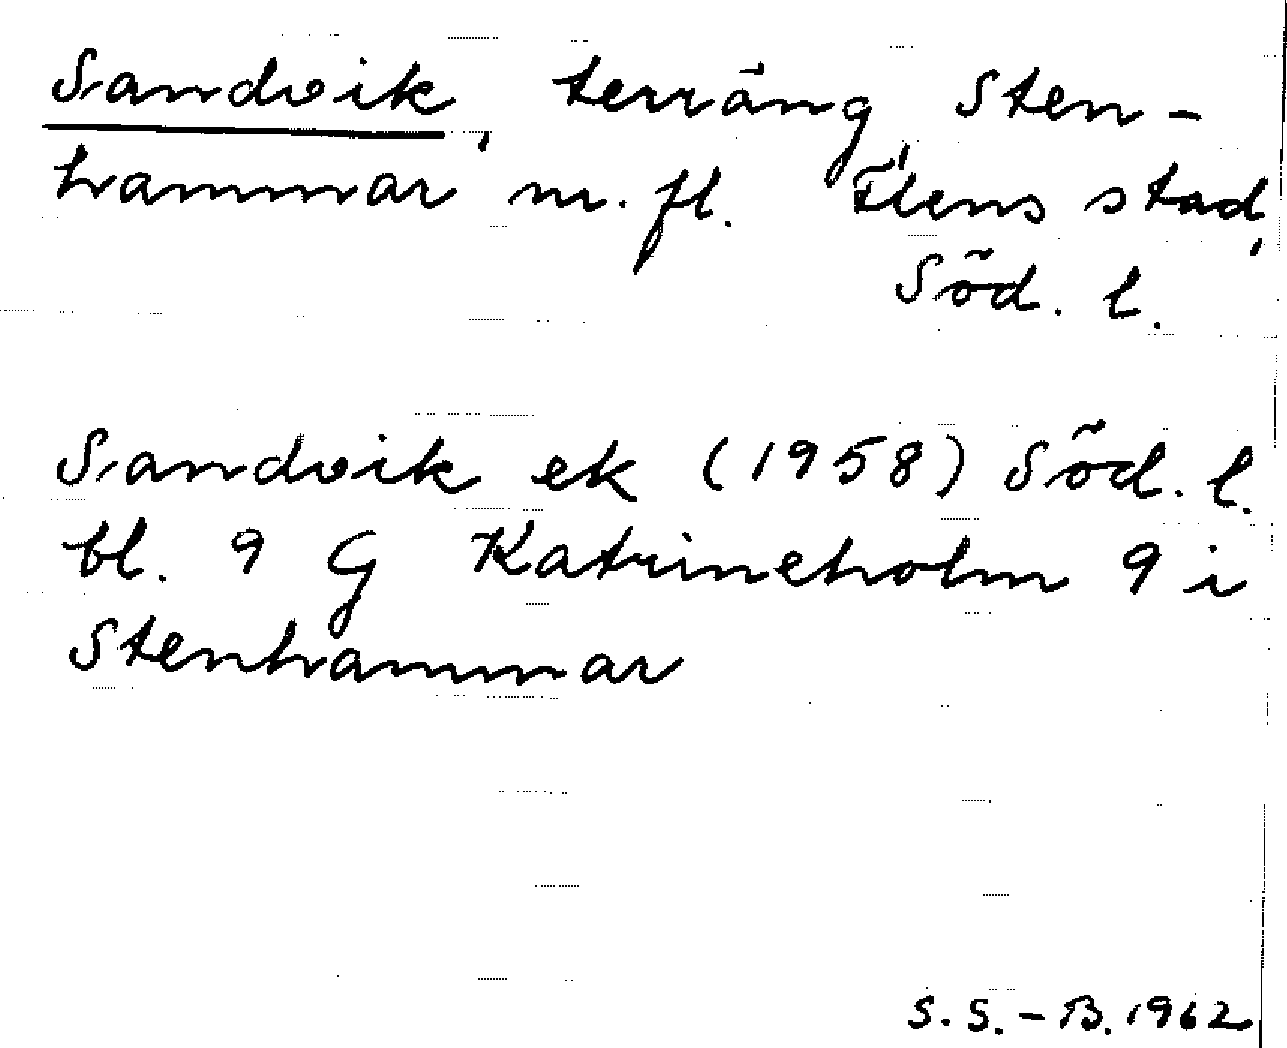 Sandvik, terräng, Sten-
hammar m. fl. Flens stad,
Söd. l.
Sandvik ek (1958) Söd. l.
bl. 9 G Katrineholm 9 i
Stenhammar
S. S. - B. 1962